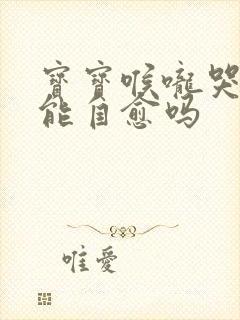 寶寶喉嚨哭
能自愈嗎
唯愛